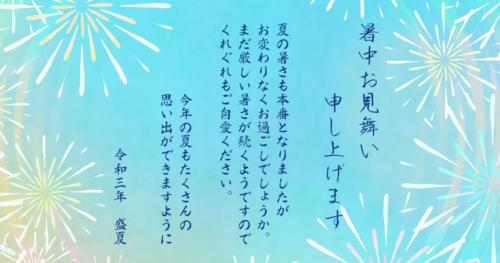 暑中お見舞い
申し上げます
夏の暑さも本番となりましたが
お変わりなくお過ごしでしょうか。
まだ厳しい暑さが続くようですので
くれぐれもご自愛ください。
今年の夏もたくさんの
思い出ができますように
令和三年　盛夏